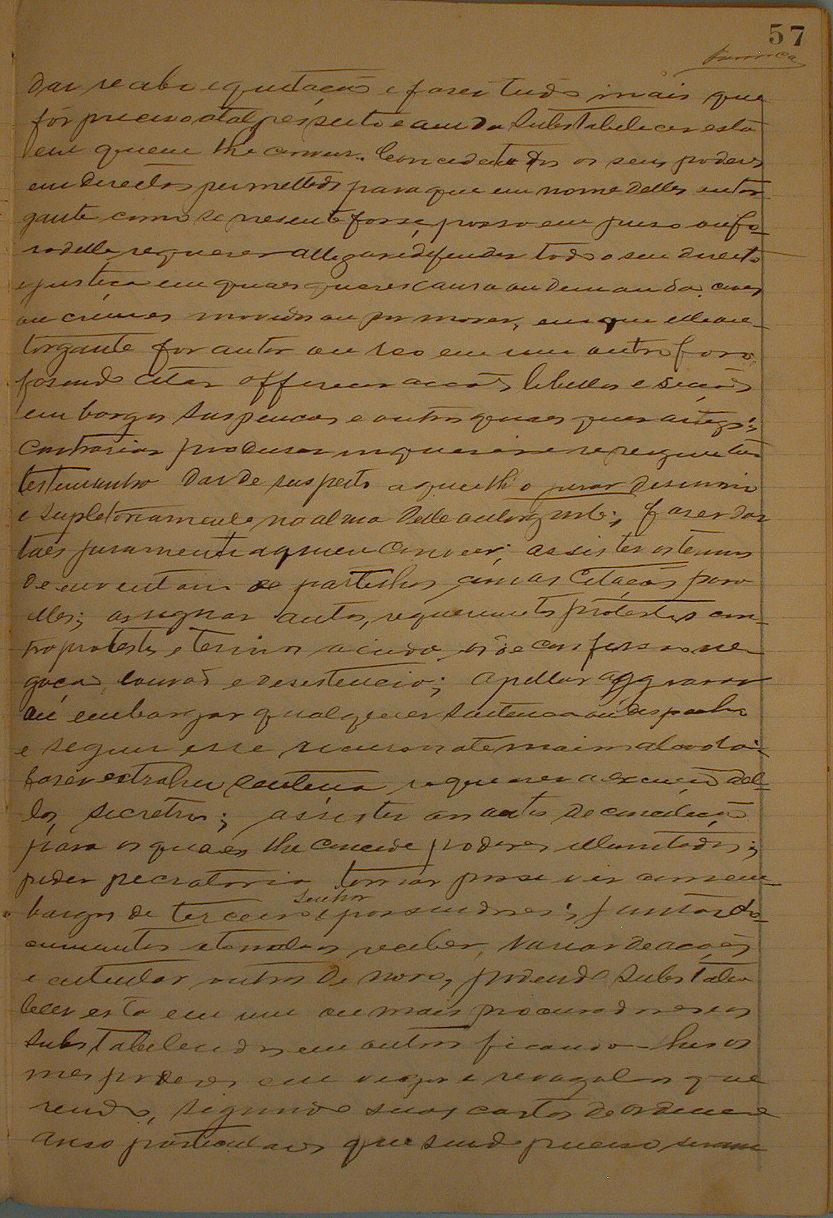 57
dar recibo e quitação e faser tudo mais que
fôr preciso a tal respeito e ainda substabelecer esta
em quem lhe convier. Concede todos os seus poderes
em direitos permettidos para que em nome delle outor
gante como se presente fosse, possa em juiso ou fo-
ra delle requerer allegar e defender todo o seu direito
e justiça em quaes quer causa ou demanda civeis
ou crimes movidas ou por mover, em que elle ou-
torgante for autor ou reo em um outro foro
fasendo citar offerecer acção libellos e
embargos suspeicões e outros quaes quer artigos;
contrariar produsir inquerir e
testemunho dar de suspeito a quem lh'o jurar
e supletoriamente na alma delle outorgante; faser dar
taes juramento a quem convier; assistir os termos
de inventario e partilhas com as citacões para
elles; assignar autos, requerimentos protestos con-
tra protestos e termos ainda os de confissão ne
gação louvação e desistencia; apellar aggravar
ou embargar qualquer sentença ou despacho
e seguir esse recursos ate maior alçada;
faser extrahir sentença requerer a execução del-
las secretros; assistir aos autos de conciliação
para os quaes lhe concede poderes illimitados;
pedir precatoria tomar posse vir com em-
bargos de terceiro senhor e possuidores; juntar do-
cumentos e tornal-os receber, variar de acções
e intentar outras de novo, podendo substabe
lecer esta em um ou mais procuradores e os
substabelecidos em outros ficando-lhes os
mes poderes em vigor e revogal-os que
rendo, segundo suas cartas de ordem e
aviso particulares que sendo preciso seram